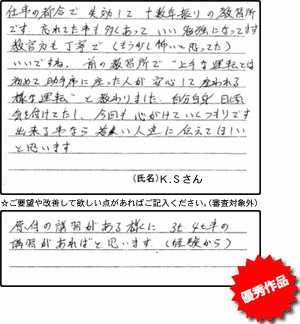 仕事の都合で失効して十数年振りの教習所
です。忘れてた事も多くあって いい勉強になってます
教官方も丁寧で(もう少し怖いと思ってた)
いいですね。前の教習所で"上手な運転では
初めて助手席に座った人が安心して座われる
様な運転"と教わりました。自分自身 日頃
気を付けてたし、今回も心がけていくつもりです
出来る事なら若い人達に伝えてほしい
と思います
(氏名)K.Sさん
☆ご要望や改善して欲しい点があればご記入ください。(審査対象外)
原付の講習がある様に 3t 4t車の
講習があればと思います(経験から)
優秀作品